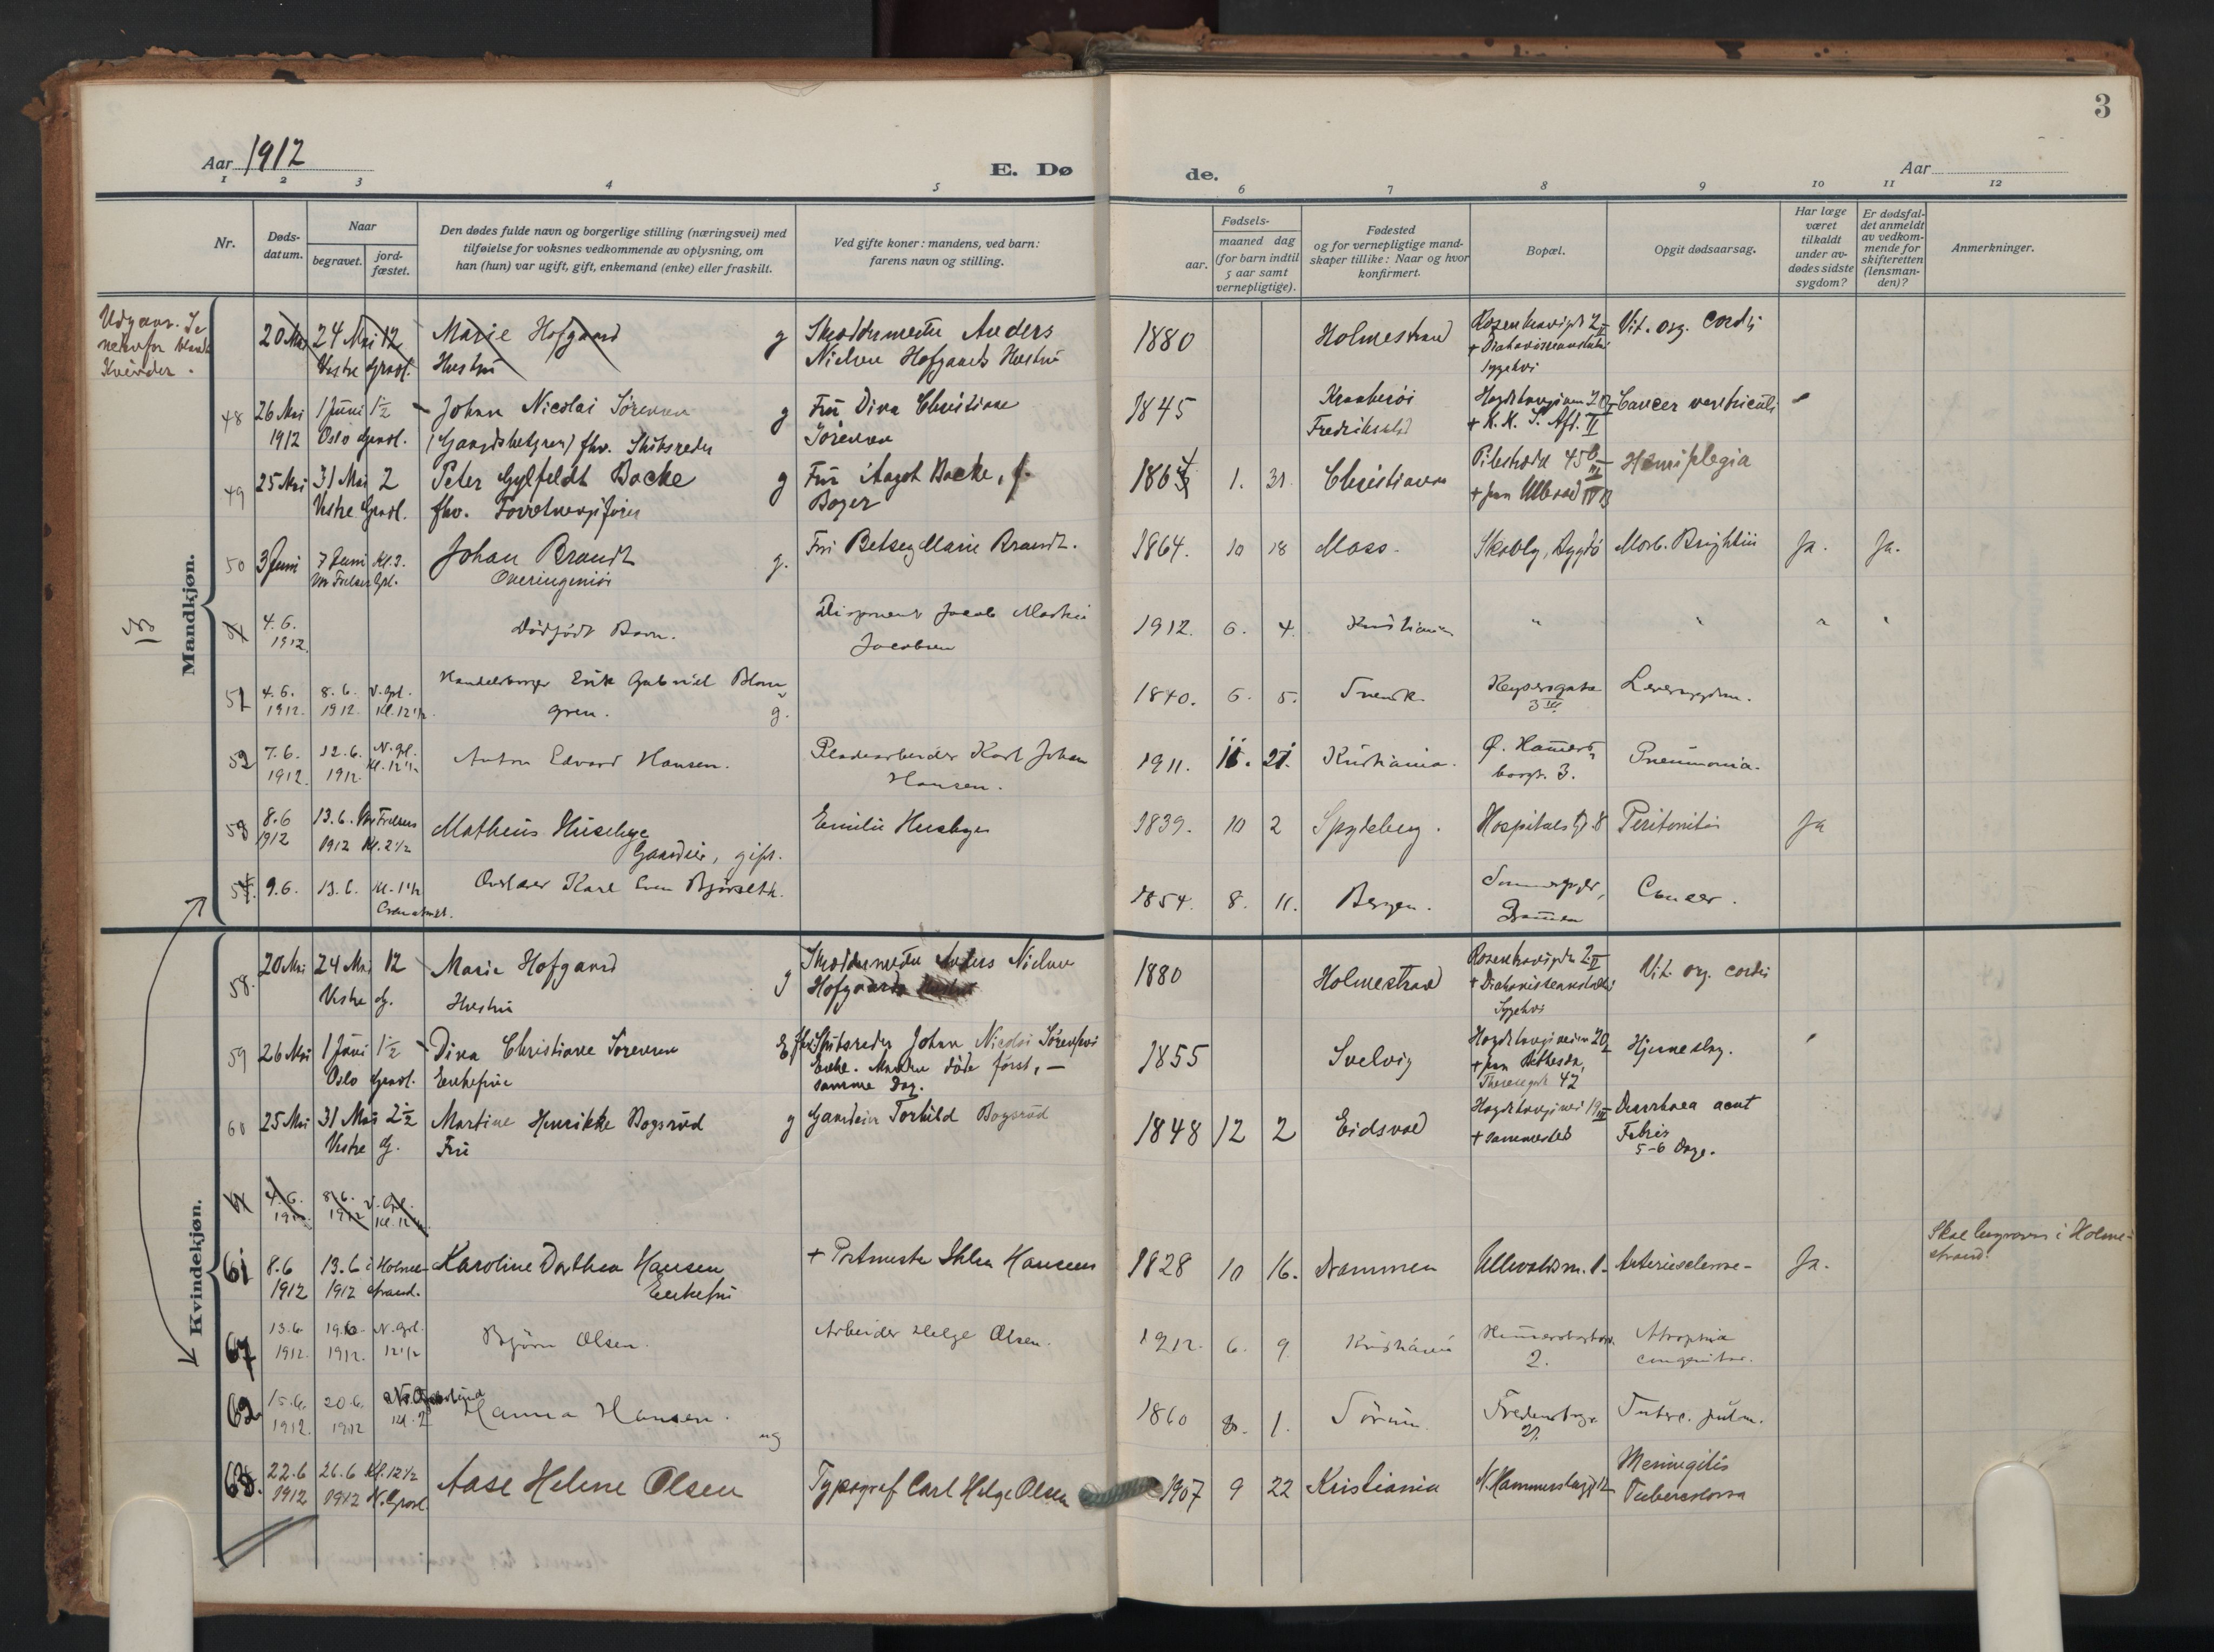 3
Aar 1912
E. Dø
de.
Aar
1 2 3 4 5 6 7 8 9 10 11 12
Nr.
Døds-
datum.
Naar
begravet.
jord-
fæstet.
Den dødes fulde navn og borgerlige stilling (næringsvei) med
tilføielse for voksnes vedkommende av oplysning, om
han (hun) var ugift, gift, enkemand (enke) eller fraskilt.
Ved gifte koner: mandens, ved barn:
farens navn og stilling.
Fødsels-
aar.
maaned dag
(for barn indtil
5 aar samt
vernepligtige).
Fødested
og for vernepligtige mand-
skaper tillike: Naar og hvor
konfirmert.
Bopæl.
Opgit dødsaarsag.
Har læge
været
tilkaldt
under av-
dødes sidste
sygdom?
Er dødsfal-
det anmeldt
av vedkom-
mende for
skifteretten
(lensman-
den)?
Anmerkninger.
Mandkjøn.
Udgaar. Se
nedenfor blandt
Kvinder.
20 Mai 24 Mai 12 Marie Hofgaard g Skræddermester Anders 1880 Holmestrand Vit. org. cordis
Vestre Gravl. Hustru Nielsen Hofgaards Hustru
+ Diakonisseanstalten
Sygehus
48 26 Mai 1 Juni 1½ Johan Nicolai Sørensen g Fru Dina Christiane 1845 Kraakerøi Cancer ventriculi
1912 Oslo Gravl. (Gaardsbestyrer) fhv. Skibsreder Sørensen Fredrikstad + K. K. S. Afd. II
49 25 Mai 31 Mai 2 Peter Gylfeldt Backe g Fru Aagot Backe, f. 1864 1. 31 Christiania Pilestrædet 45 Hemiplegia
Vestre Gravl. fhv. Forretningsfører Boger
50 3 Juni 7 Juni Kl. 2. Johan Brandt g. Fru Betsey Marie Brandt. 1864. 10 18 Moss. Skably, Bygdø Morb. Brightii Ja. Ja.
Vor Frelser Gr. Overingeniør
4.6. Dödfödt Barn. Disponent Jacob Martin 1912. 6. 4. Kristiania " " " "
1912. Jacobsen
51 4.6. 8.6. V. Grl. Handelsborger Erik Gabriel Blom- 1840. 6. 5. Svensk Keysersgate Leversygdom.
1912. 1912. Kl. 12½. gren. g. 3 III
52 7.6. 12.6. N. Grl. Anton Edvard Hansen. Pladearbeider Karl Johan 1911. 11. 21. Kristiania. Ø. Hammers- Pneumonia.
1912. 1912. Kl. 12½ Hansen. borgt. 3.
53 8.6 13.6. Vor Frelsers Matheus Husebye Emilie Husebye 1839. 10 2 Spydeberg. Hospitalsgt. 8 Peritonitis Ja
1912 1912 Kl. 2½ Gaardeier, gift.
54. 9.6. 13.6. Kl. 1½ Overlærer Karl Even Bjørseth. 1854. 8. 11. Bergen. Cancer.
Crematoriet. Drammen
Kvindekjøn.
58. 20 Mai 24 Mai 12 Marie Hofgaard g Skræddermester Anders Nielsen 1880 Holmestrand Vit. org. cordis
Vestre G. Hustru Hofgaards
+ Diakonisseanstaltens
Sygehus
59 26 Mai 1 Juni 1½ Dina Christiane Sørensen E fhv. Skibsreder Johan Nicolai Sørensens 1855 Svelvig Hjerneslag.
Oslo Gravl. Enkefrue Enke. Manden døde først, —
samme Dag.
Theresegt. 42
60 25 Mai 31 Mai 2½ Martine Henrikke Bogsrud g Gaardeier Torkild Bogsrud 1848 12 2 Eidsvold Diarrhoea acut
Vestre G. Fru + sammesteds Febris
5-6 Dage.
4.6. 8.6. V. Grl.
1912. 1912 Kl. 12½.
61 8.6 13.6 i Holme- Karoline Dorthea Hansen + Postmester Ihlen Hansens 1828 10 16. Drammen Ullevoldsv. 1. Arteriesclerose- Ja. Skal begraves i Holme-
1912 1912 strand. Enkefru strand.
13.6 19.6 N. Grl. Bjørn Olsen. Arbeider Helge Olsen. 1912. 6. 9. Kristiania Atrophia
1912. 1912. 12½ 2. congenita.
62 15.6. 20.6. N. Gravlund Hanna Hansen. ug 1860 8. 1. Sörum. Tuberc. pulm.
1912. 1912 Kl. 2
63. 22.6 26.6 Kl. 12½ Aase Helene Olsen Typograf Carl Helge Olsen 1907 9 22 Kristiania N. Hammersborggt 12 Meningitis
1912 1912 N. Gravl. Tuberculosa